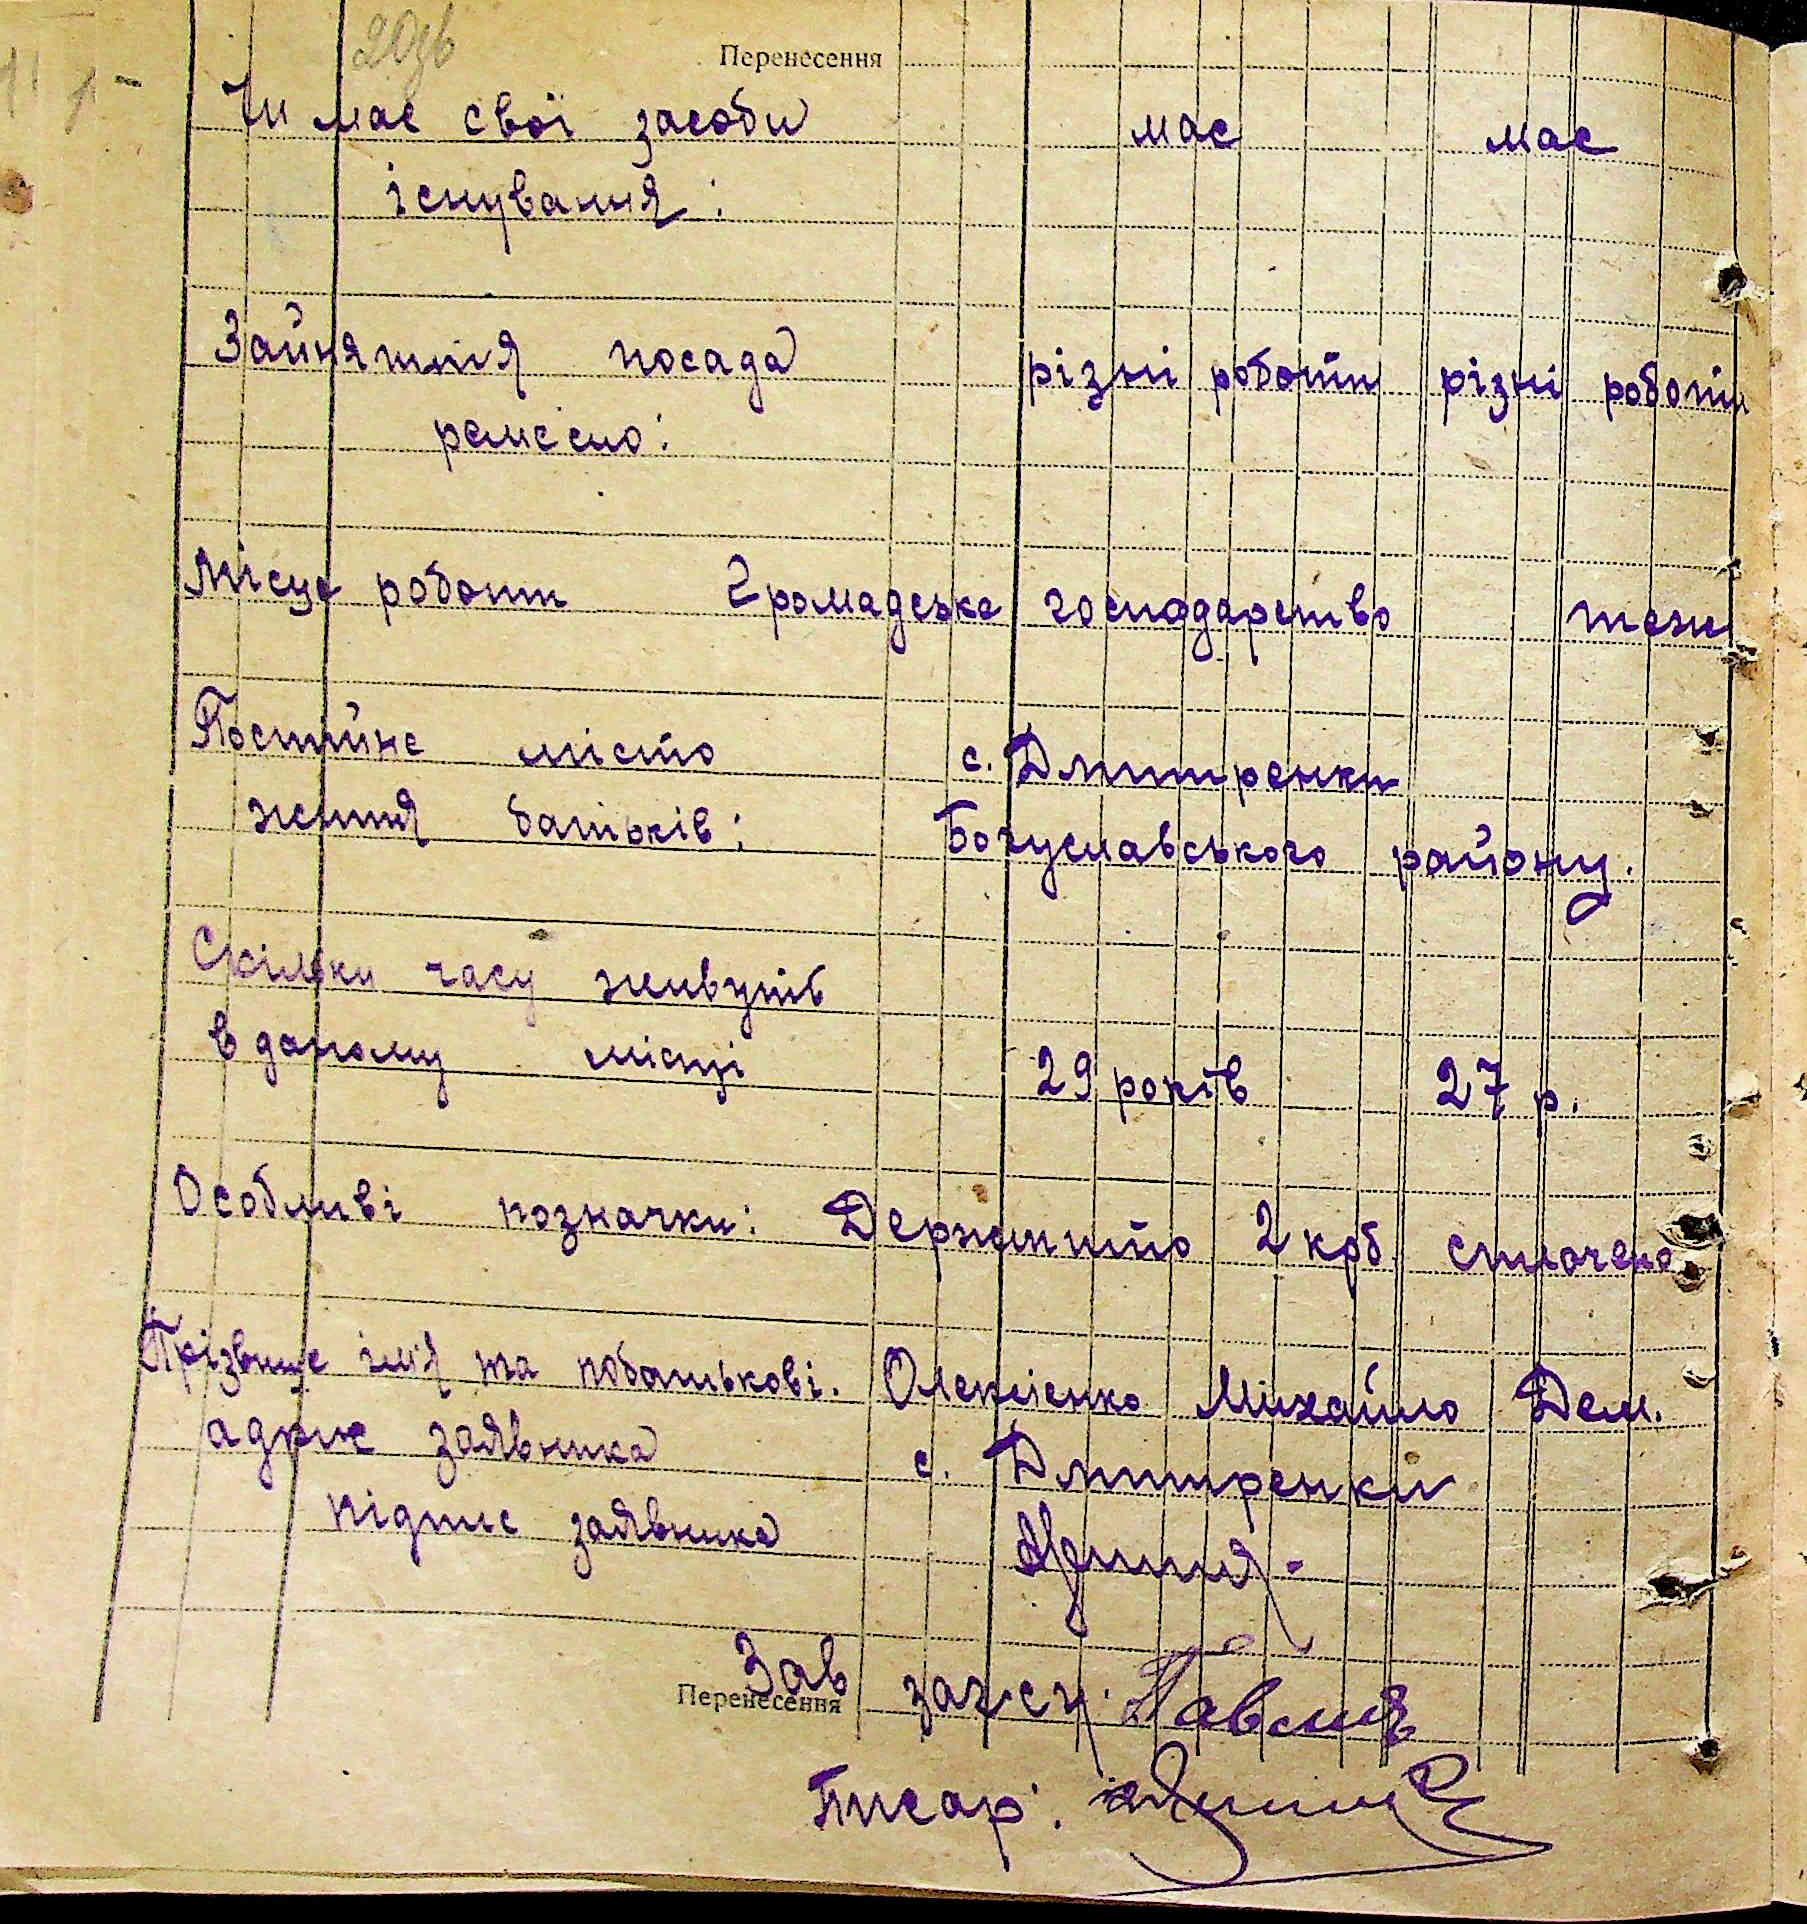 20зв
Перенесення
Чи має свої засоби має має
існування:
Зайняття посада різні роботи різні роботи
ремесло:
Місце роботи Громадське господарство теж
Постійне місто с. Дмитренки
життя батьків: Богуславського району.
Скільки часу живуть
в даному місці 29 років 27 р.
Особливі позначки: Держмито 2 крб. сплачено
Прізвище ім'я та побатькові. Олексієнко Михайло Дем.
адрис заявника с. Дмитренки
підпис заявника
Зав загсу:
Перенесення
Писар: